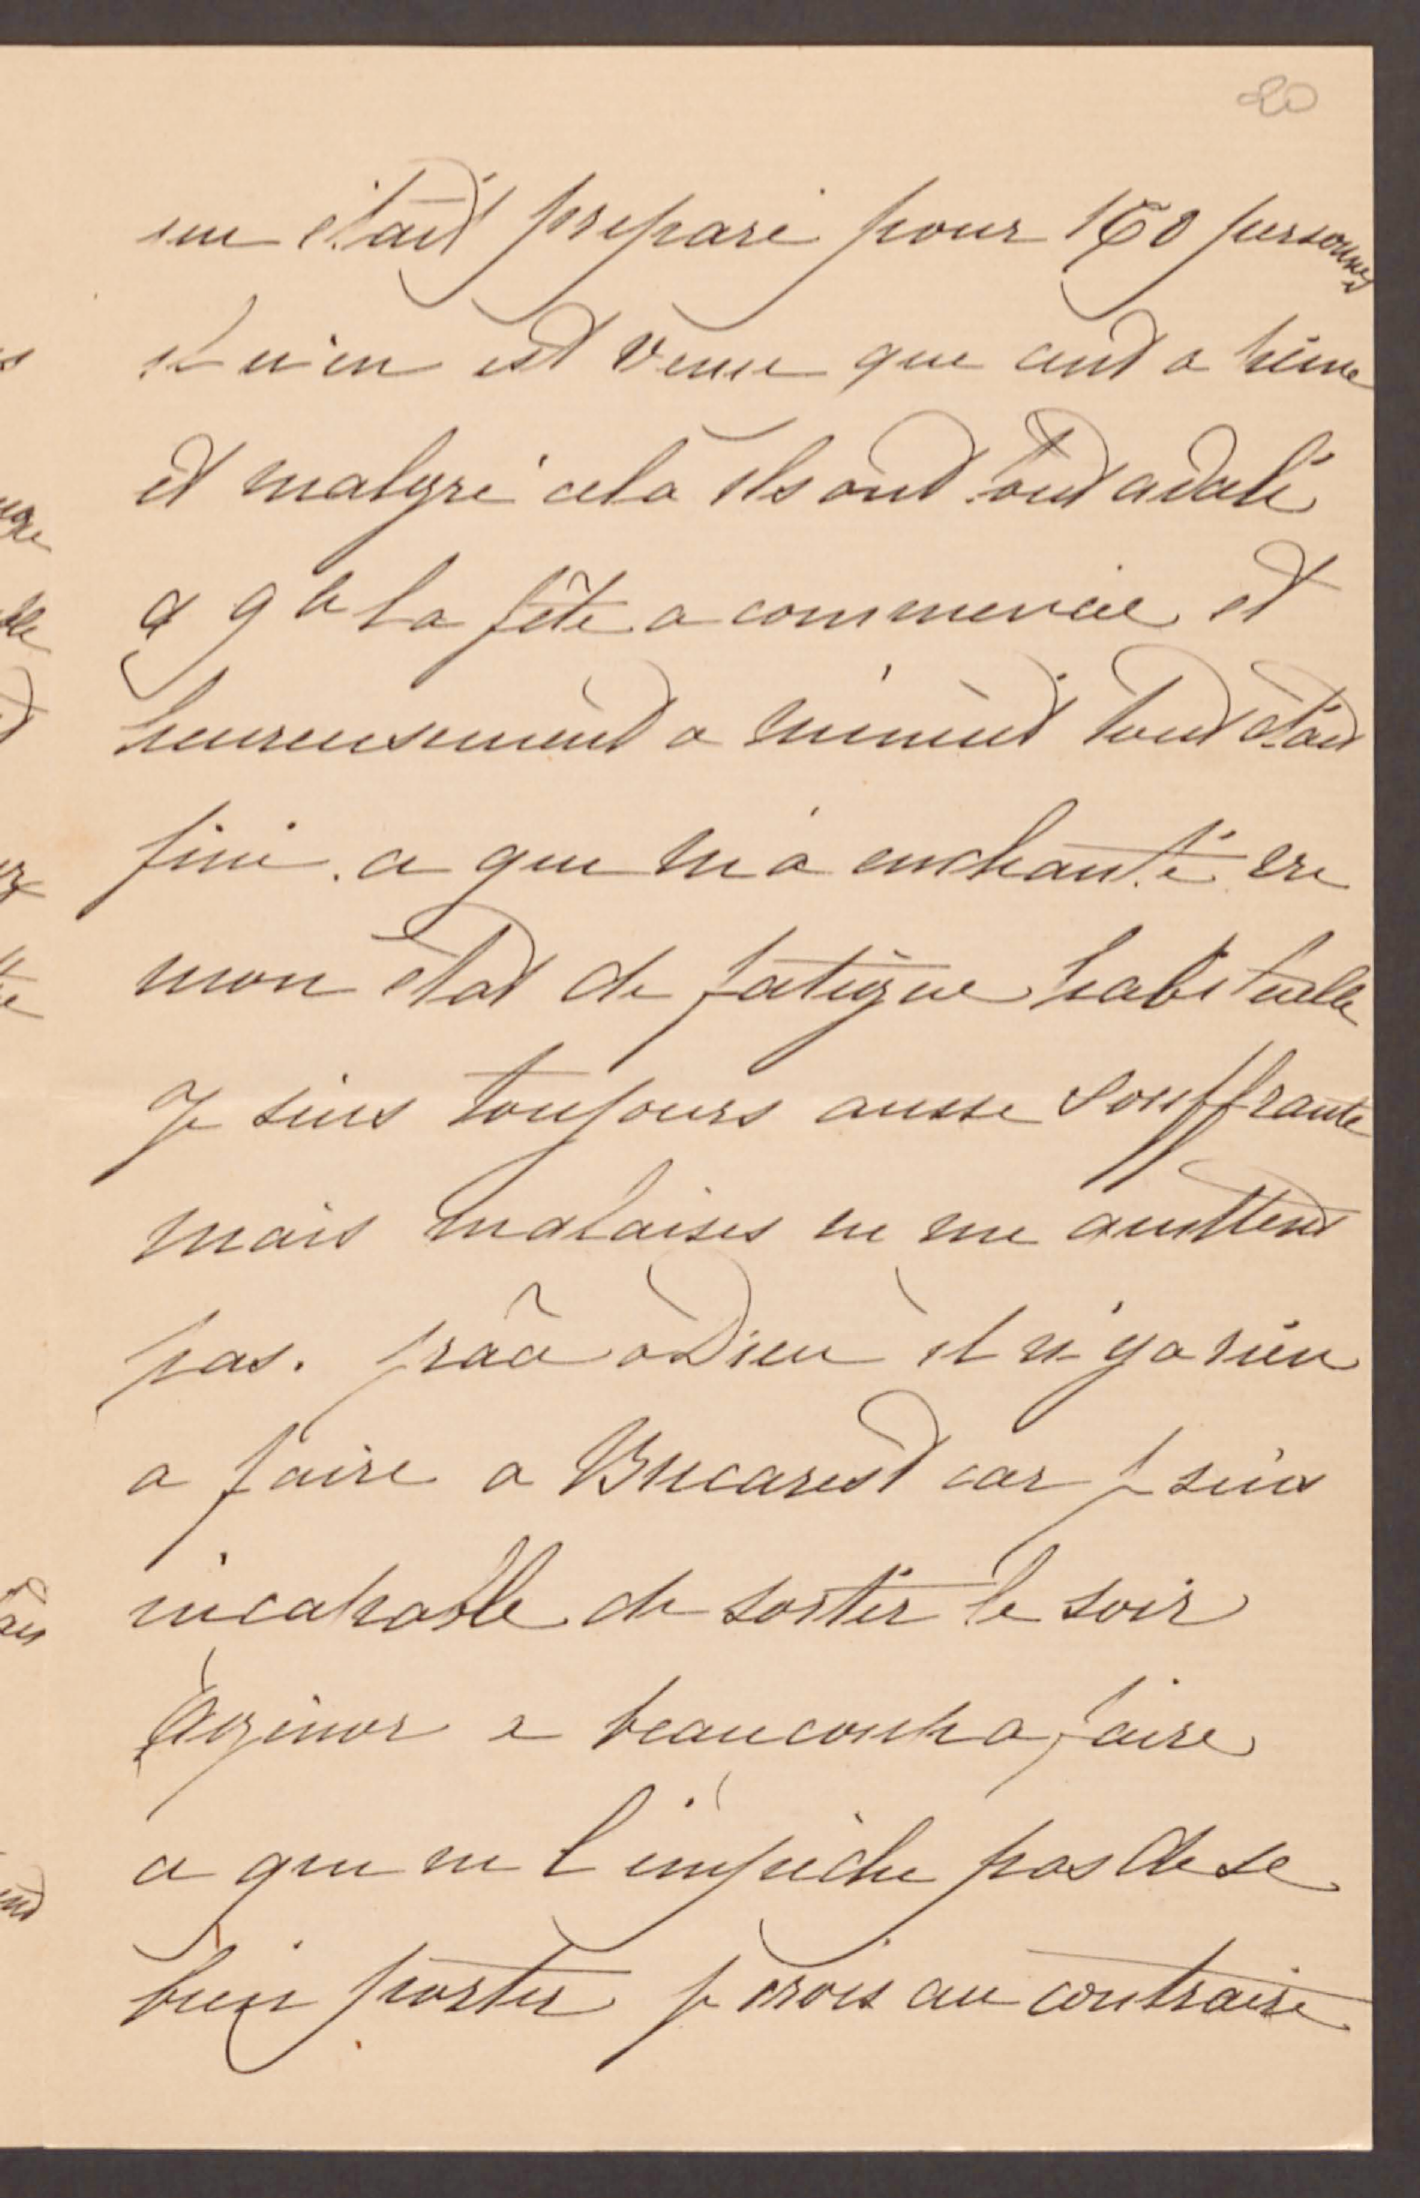 20
était préparé pour 150 personnes
il n'en est venu que cent a peine
et malgré cela ils ont tout avalé
a 9 h la fête a commencée et
heureusement a minuit tout était
fini. ce que m'a enchanté vu
mon état de fatigue habituelle
Je suis toujours ausse souffrante
mais malaises ne me quittent
pas. grâce a Dieu il n'y a rien
a faire a Bucarest car je suis
incapable de sortir le soir
Agenor a beaucoup a faire
ce que ne l'empêche pas de se
bien porter je crois au contraire